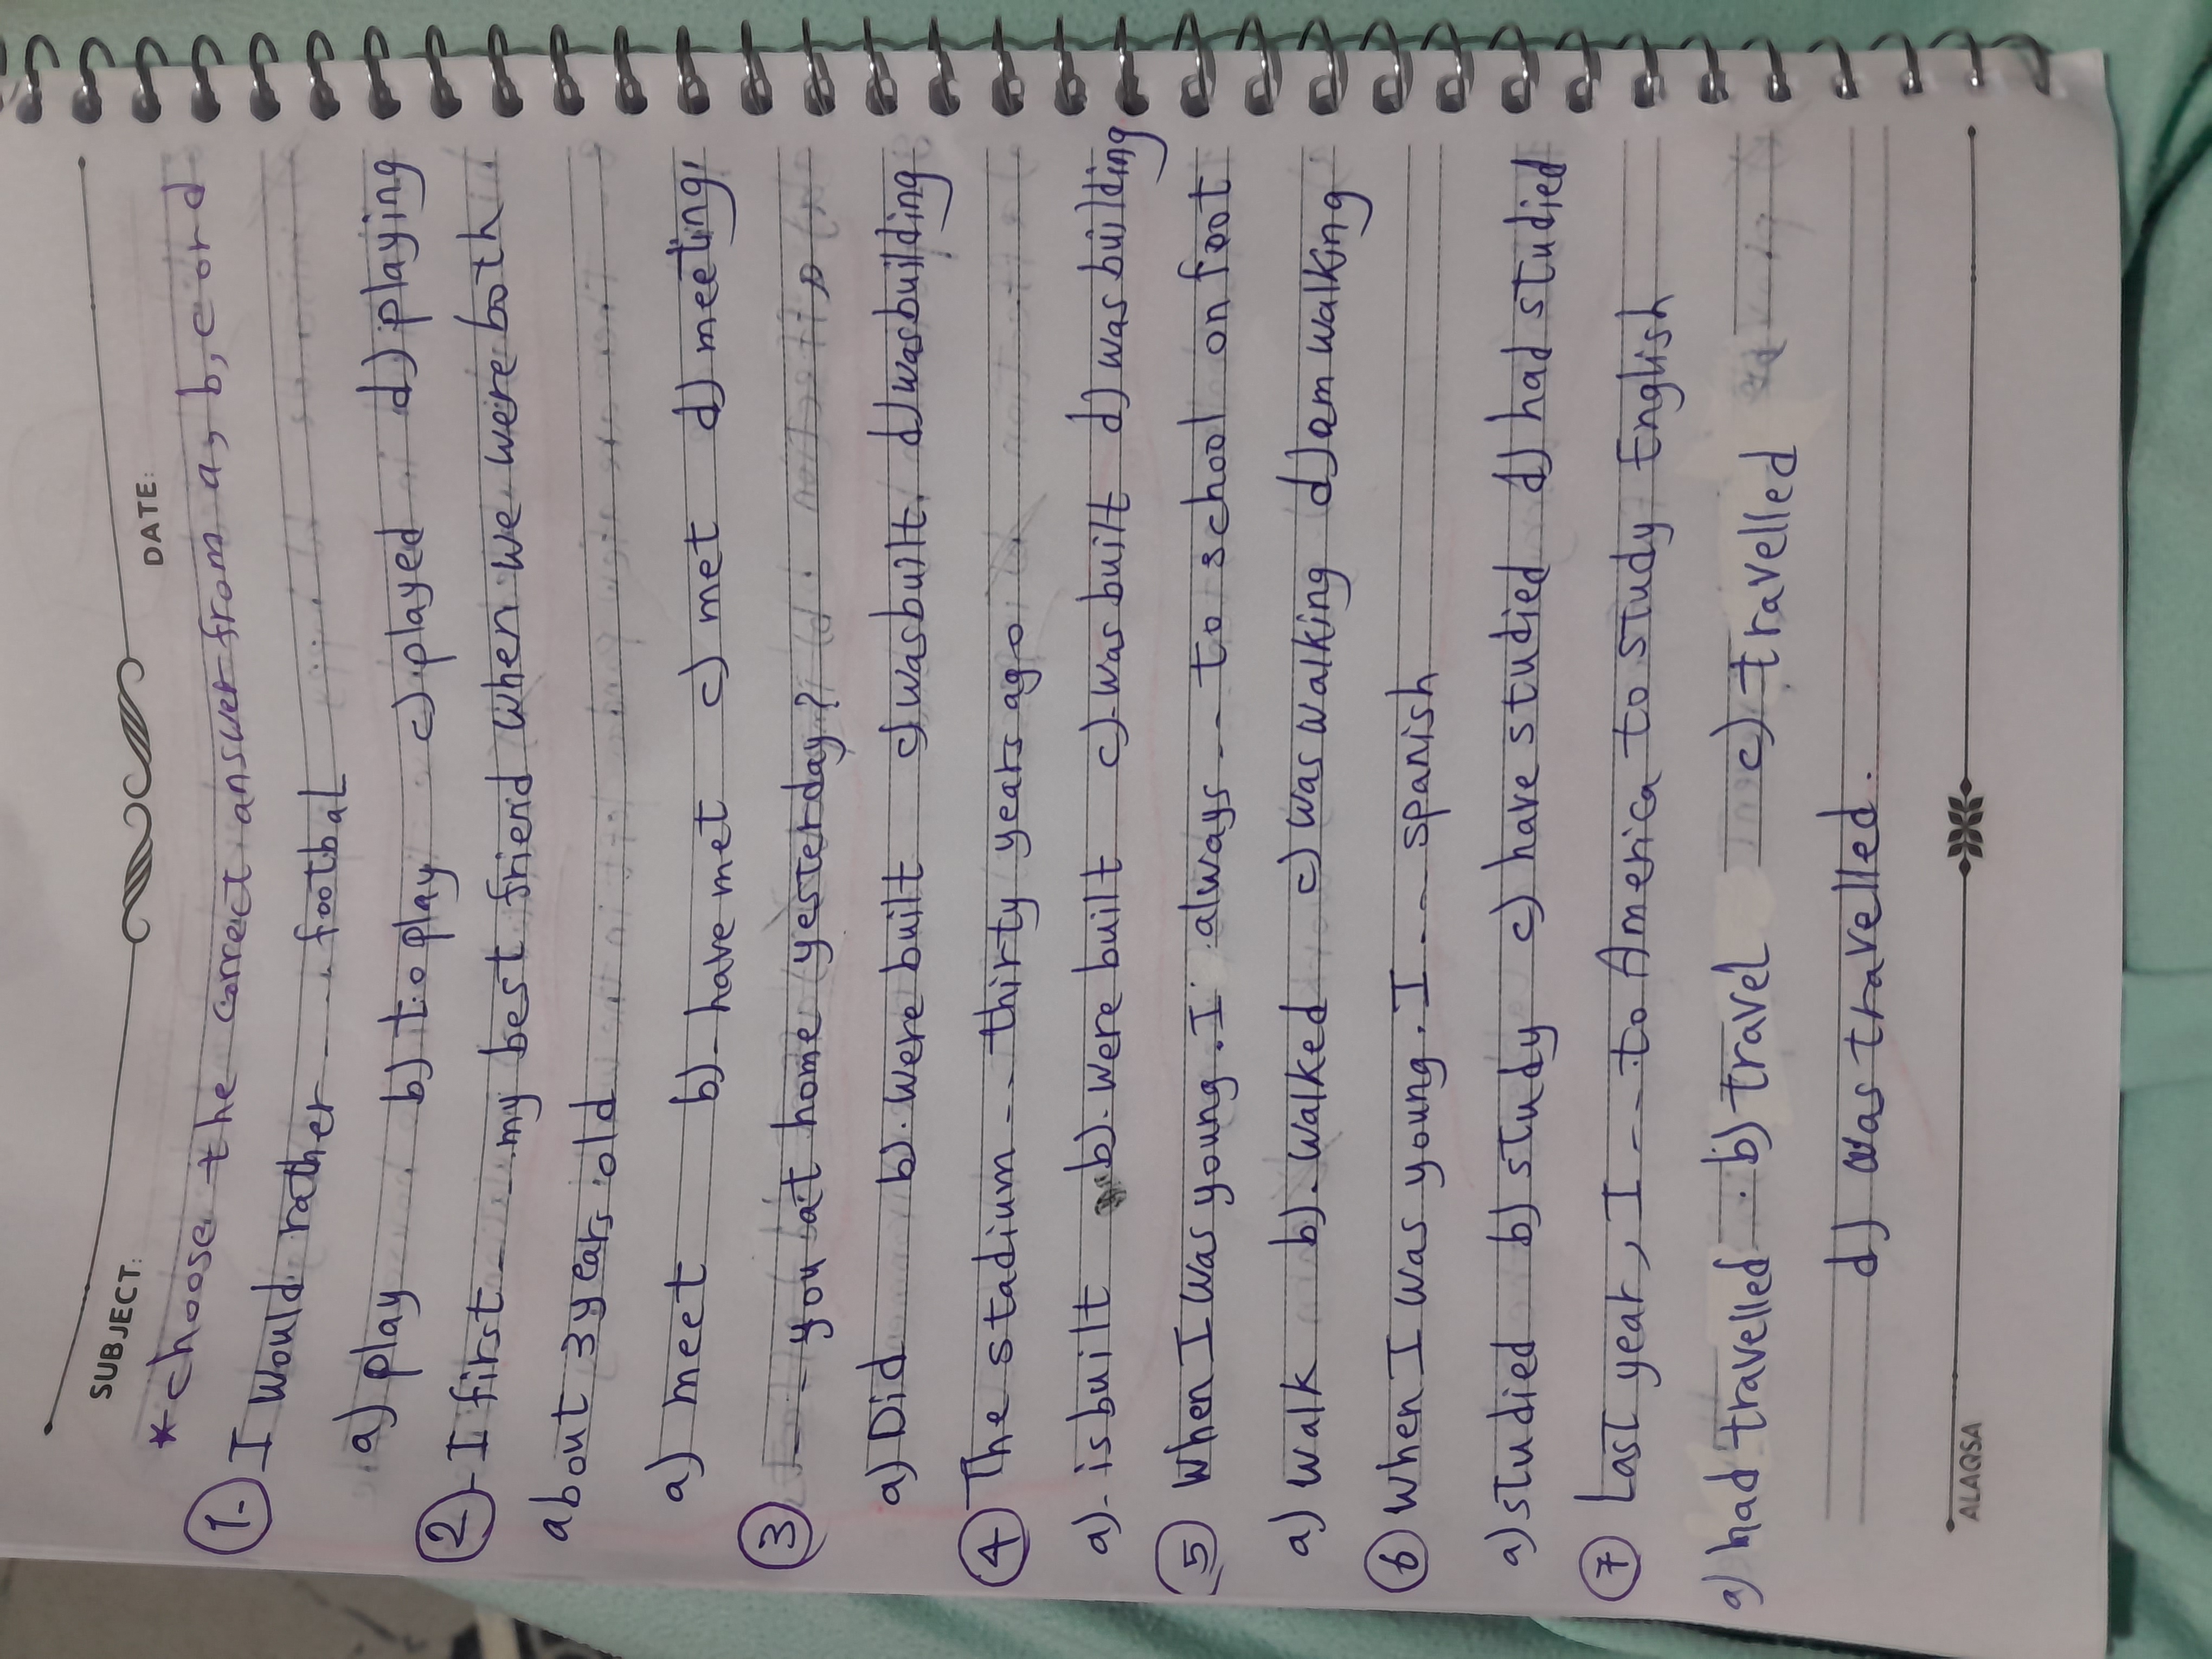 SUBJECT:
DATE:
* choose the correct answer from a, b, c or d
1- I would rather - - . footbal
a) play b) to play c) played d) playing
2 - I first - - .. my best friend when we were both
about 3 years old
a) meet b)- have met c) met d) meeting
3 - - - you at home yesterday?
a) Did b). were built c) was built. d) was building
4 The stadium - - thirty years ago
a)- is built b)- were built c)- was built d) was building
5 When I was young. I always - - to school on foot
a) walk b). walked c) was walking d) am walking
6 When I was young. I - - spanish
a) studied b) study c) have studied d) had studied
7 Last year, I - - - to America to study English
a) had travelled b) travel c) travelled
d) was travelled.
ALAQSA